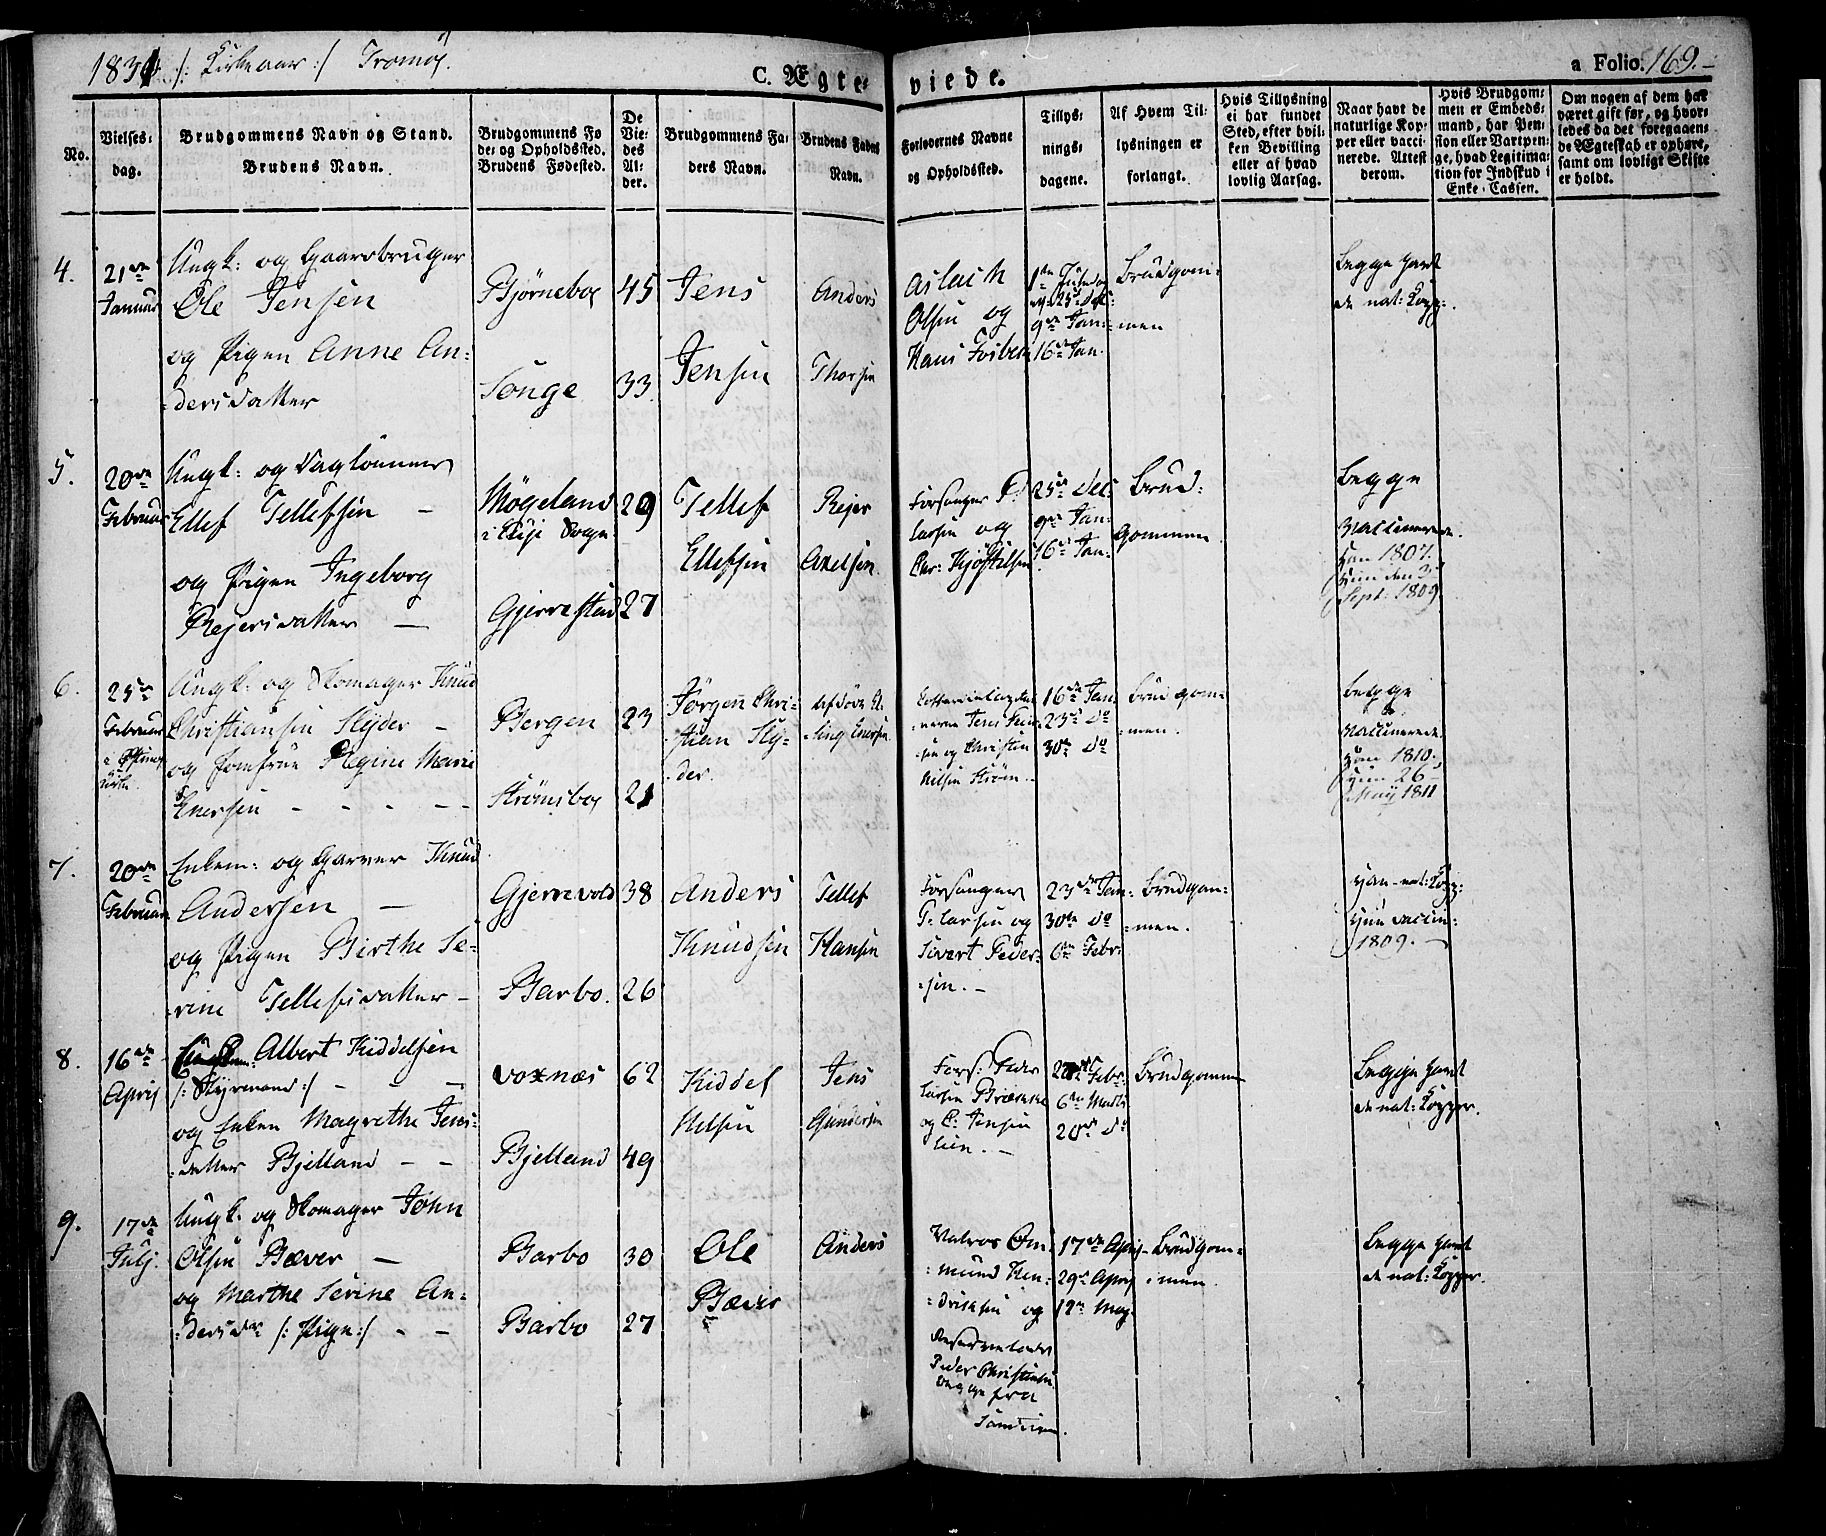 1831 /: Kirkeaar :/ Tromøy.
C. Ægteviede.
a Folio. 169.
No.
Vielsesdag.
Brudgommens Navn og Stand.
Brudens Navn.
Brudgommens Føde- og Opholdssted.
Brudens Fødested.
De Viedes Alder.
Brudgommens Faders Navn.
Brudens Faders Navn.
Forlovernes Navne og Opholdssted.
Tillysningsdagene.
Af Hvem Tillysningen er forlangt.
Hvis Tillysning ei har fundet Sted, efter hvilken Bevilling eller af hvad lovlig Aarsag.
Naar havt de naturlige Kopper eller vaccinerede. Attest derom.
Hvis Brudgommen er Embedsmand, har Pension eller Vartpenge, hvad Legitimation for Indskud i Enke-Cassen.
Om nogen af dem har været gift før, og hvorledes da det foregaaende Ægteskab er ophøre, samt om lovligt Skifte er holdt.
4.
21de Januar
Ungk: og Gaardbruger
Ole Jensen
og Pigen Anne An-
dersdatter
Bjørneboe
Songe
45
33
Jens
Jensen
Anders
Thorsen
Aslach
Olsen og
Hans
9de Jan:
16de Jan.
Brudgom-
men
Begge havt
de nat: Kopp:
5.
20de
Februar
Ungk: og Daglønner
Ellef Tellefsen
og Pigen Ingeborg
Reiersdatter
Møgeland
i Sogn
Gjerrestad
29
27
Tellef
Ellefsen
Reier
Axelsen
Forsanger P.
Larsen og
Chr:
25de Dec:
9de Jan:
16de Jan:
Brud-
gommen
Begge
Vaccinerede.
han 1807.
hun den 3
Sept: 1809
6.
25de
Februar
Ungk: og Skomager Knud
Christiansen Slyder
og Jomfrue Regine Marie
Enersen
Bergen
Strømsboe
23
21
Jørgen Chri-
stian Sly-
der.
Enersen
Jens
og Christen
Nilsen Strøm
16de Jan:
23de do
30te do
Brudgom-
men.
Begge
Vaccinerede
han 1810.
hun 26
May 1811
7.
20de
Februar
Enkem: og Garver Knud
Andersen
og Pigen Birthe Se-
rine Tellefsdatter
Gjerrevold
Barbo.
38
26
Anders
Knudsen
Tellef
Hansen
Forsanger
P: Larsen og
Sivert Peder-
sen.
23de Jan:
30te do
6te Febr:
Brudgom-
men.
Han nat: Kopp:
hun vaccin:
1809.
8.
16de
April
Albert Kiddelsen
/: Styrmand :/
og Enken Magrethe Jens-
datter Bjelland
Voxnæs
Bjelland
62
49
Kiddel
Nelsen
Jens
Gundersen
Fors: Peder
Larsen
og C: Jensen
Lien.
Febr:
6te Marts
20de do
Brudgommen
Begge havt
de nat: Kopper.
9.
17de
July
Ungk: og Skomager John
Olsen Bæver
og Marthe Serine An-
dersdtr /: Pige :/
Barbo
Barbo
30
27
Ole
Bæver
Anders
Matros Om-
mund Hen-
driksen og
Peder Christensen
begge fra
17de April
29de April
12te May.
Brudgom-
men.
Begge havt
de nat: Kopper.